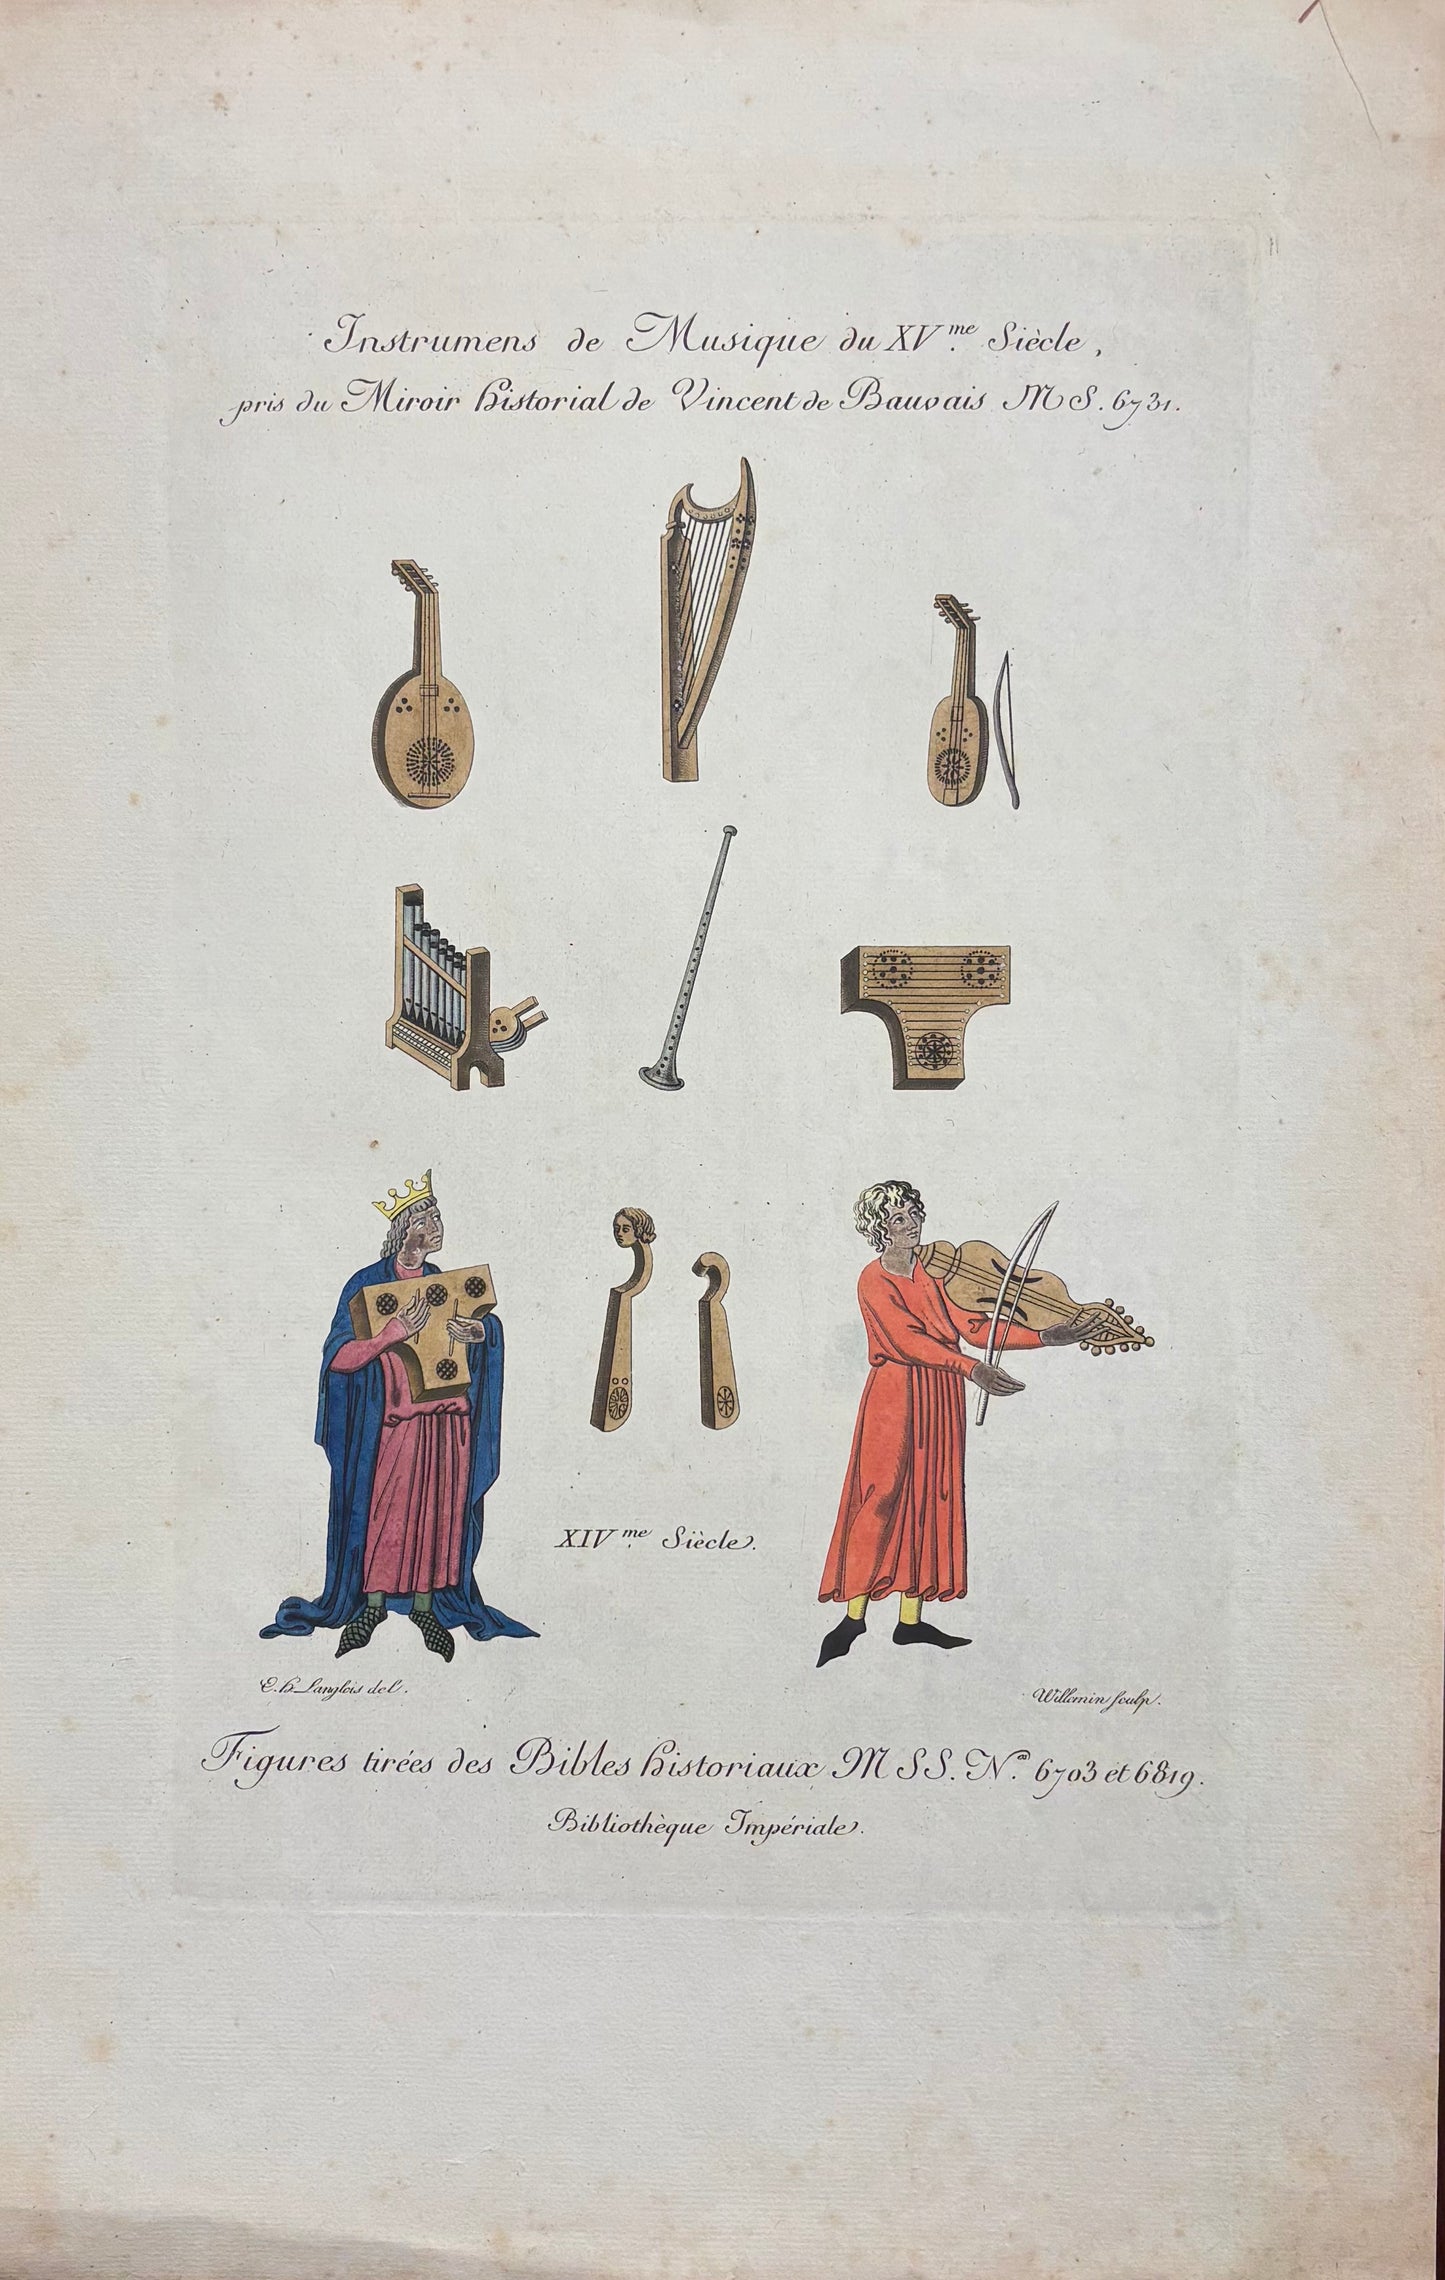 Instrumens de Musique du XV.me Siècle,
pris du Miroir historial de Vincent de Bauvais MS. 6731.
XIV.me Siècle.
E. h. Langlois del.
Willemin sculp.
Figures tirées des Bibles historiaux MSS. N.os 6703 et 6819.
Bibliothèque Impériale.